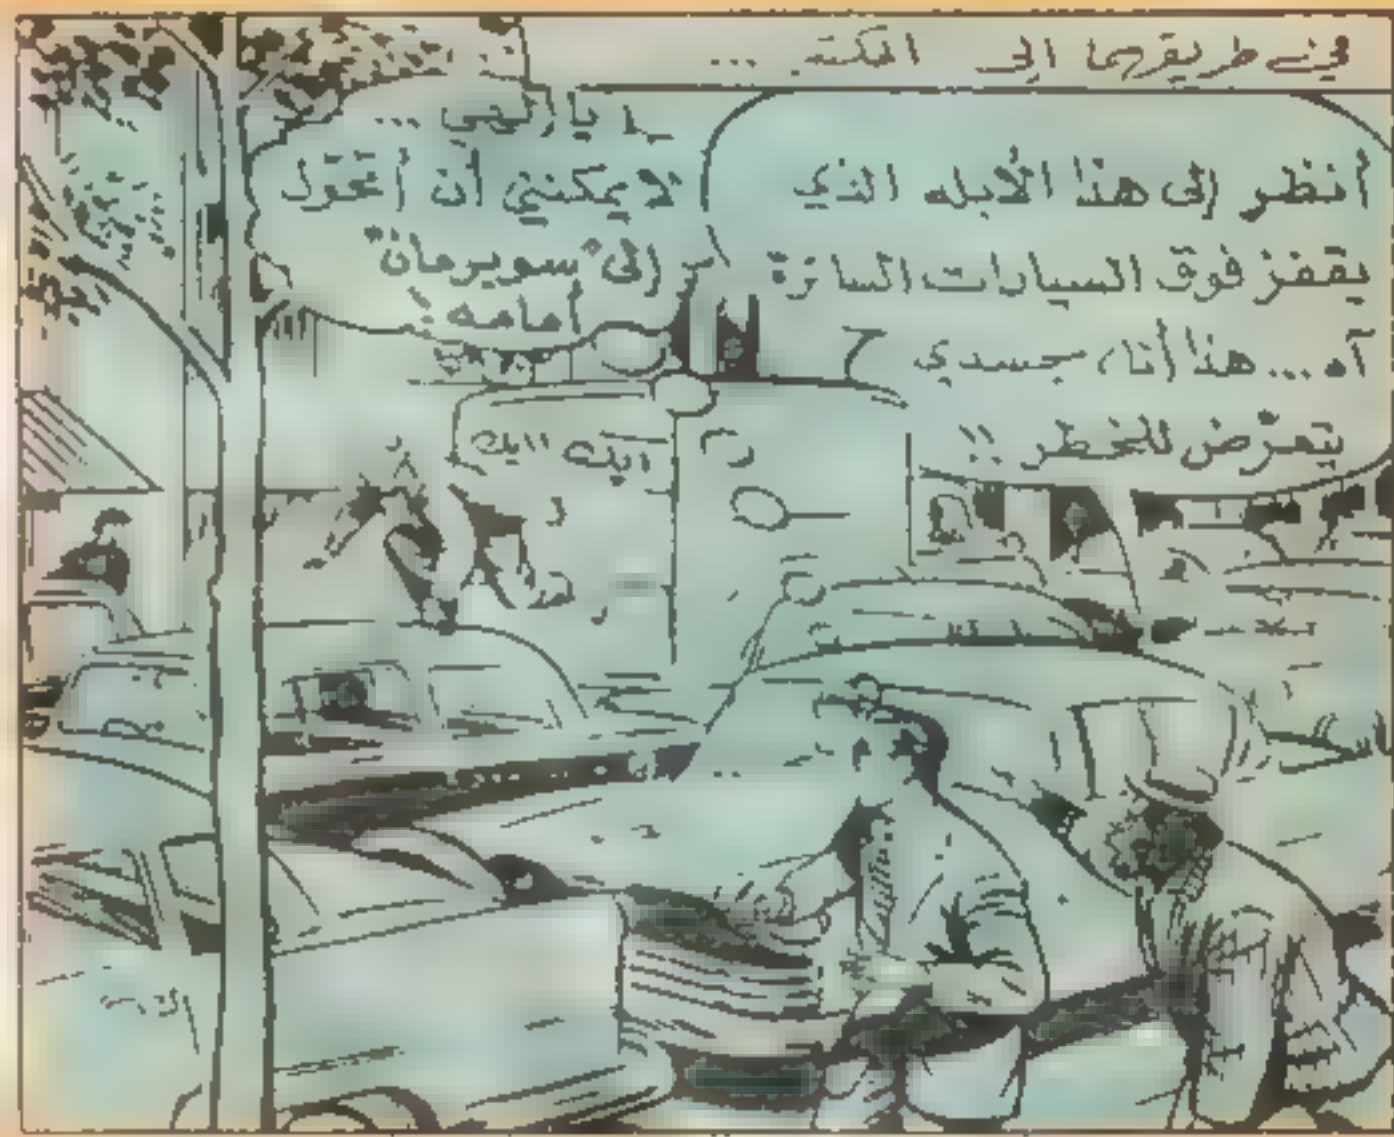 في طريقهما إلى المكتب ...
أنظر إلى هذا الأبله الذي
يقفز فوق السيارات السائرة
آه... هذا أنا، جسدي
يتعرّض للخطر !!
يا إلهي ...
لا يمكنني أن أتحوّل
إلى "سوبرمان"
أمامه !